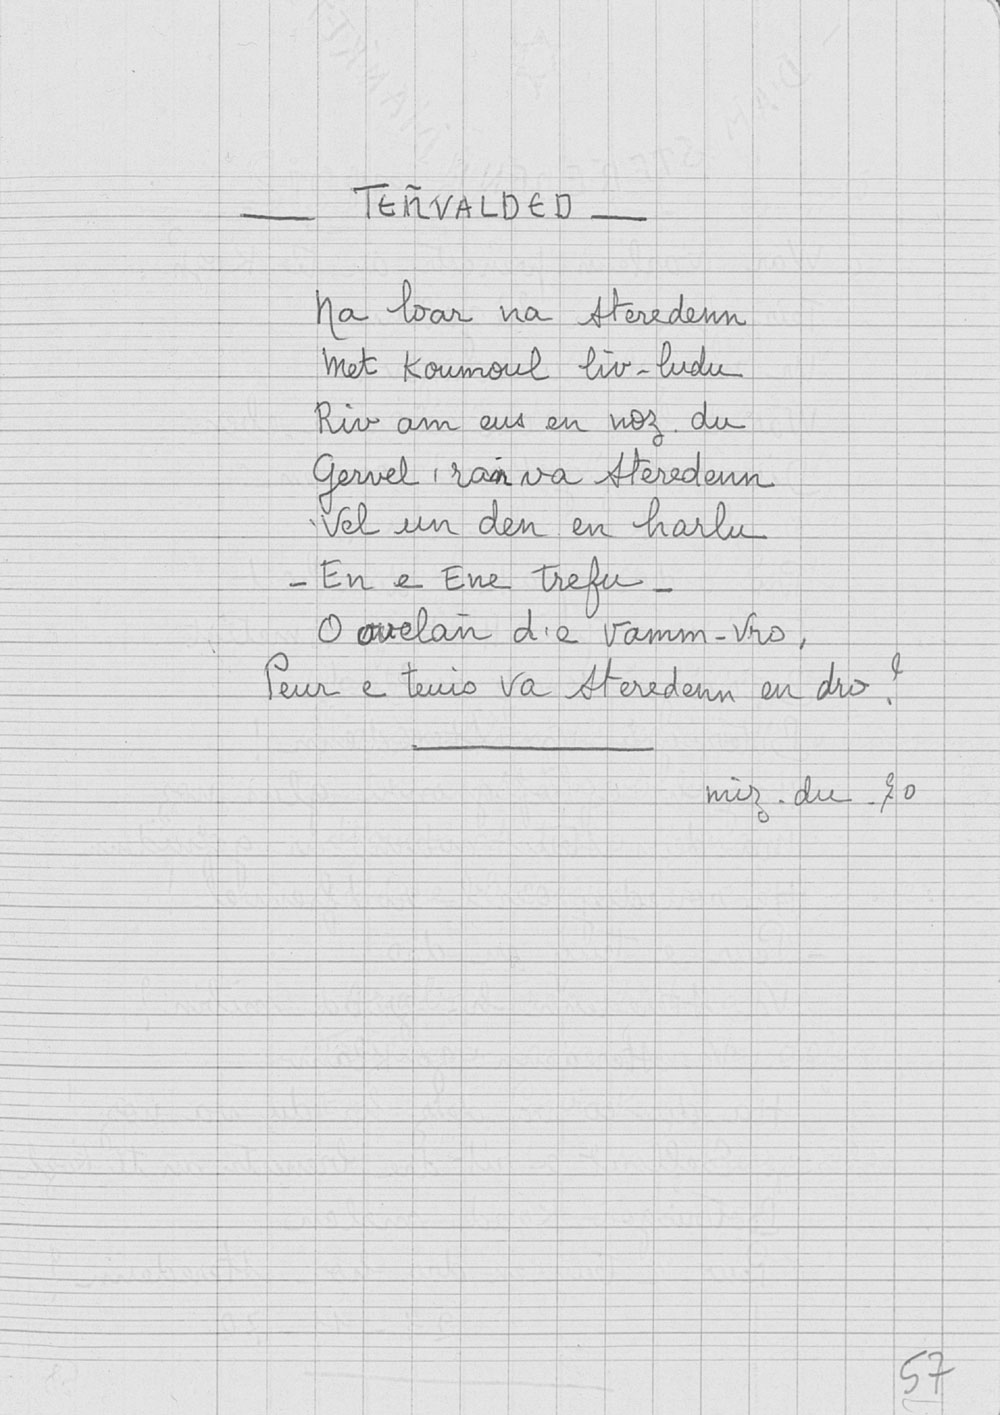 — TEÑVALDED —
Na loar na steredenn
Met koumoul liv-ludu
Riv am eus en noz du
Gervel ran va steredenn
Vel un den en harlu
- En e Ene trefu -
O ouelañ d'e Vamm-Vro,
Peur e teuio va steredenn en dro ?
miz-du 70
57